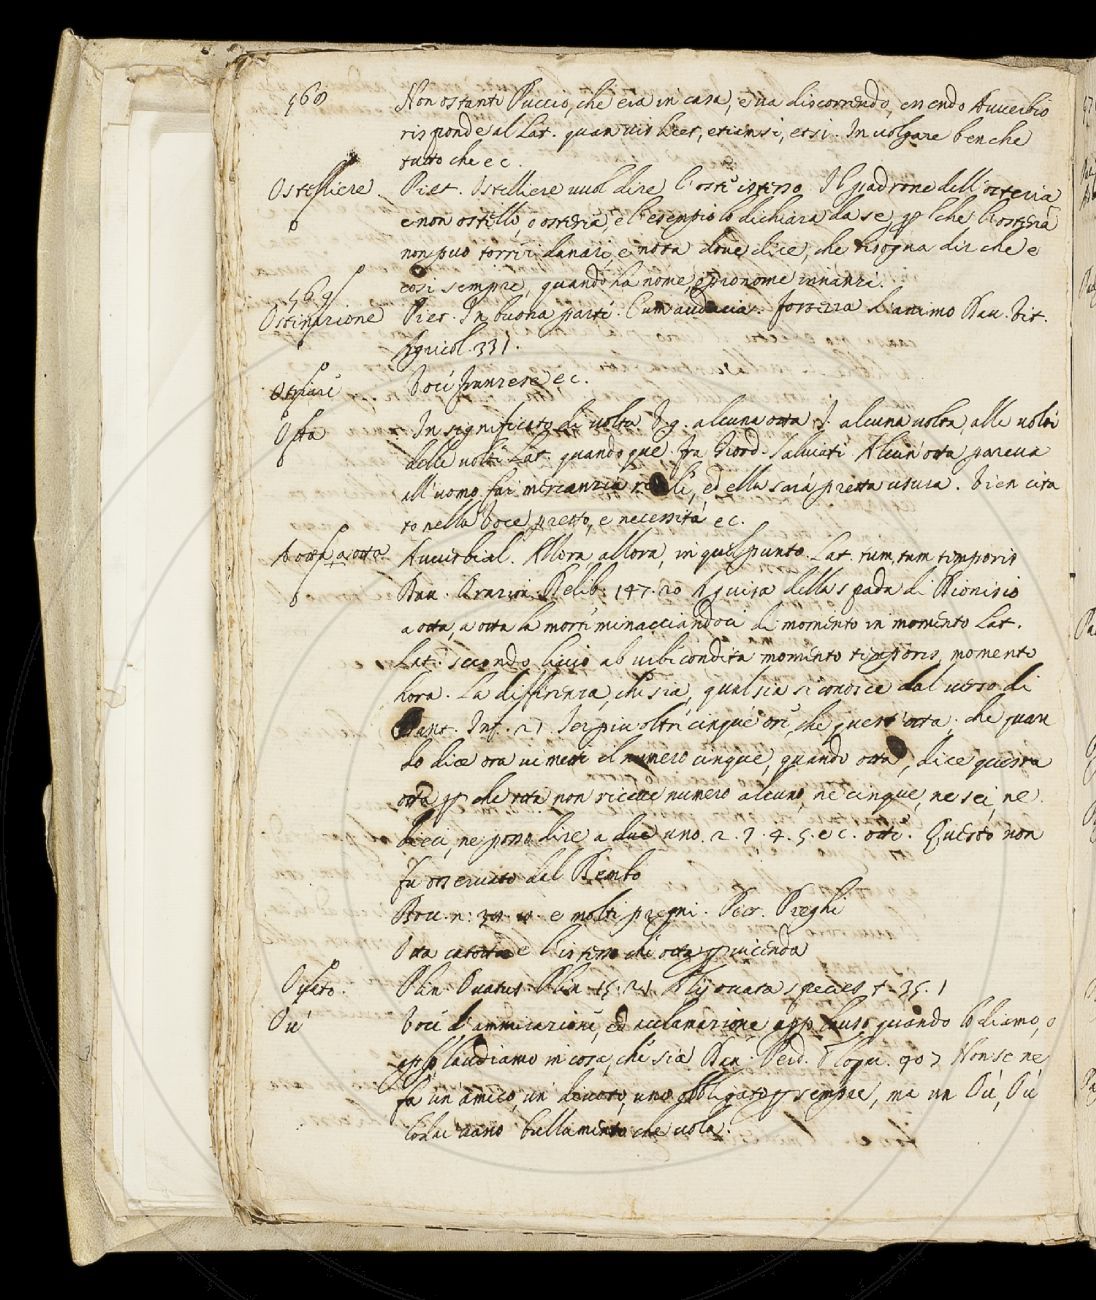 568 Non ostante Puccio, che era in casa, e va discorrendo, essendo Avverbio
risponde al Lat. quamvis licet, etiamsi, etsi. In volgare benche
tutto che ec.
Ostelliere Piet. Ostelliere vuol dire l'oste istesso Il padrone dell'osteria
e non ostello, o osteria, e l'esempio lo dichiara da se, che l'osteria
non puo torre i danari, e nota dove dice, che bisogna dir che e
cosi sempre, quando ha nome, o pronome innanzi.
569
Ostinazione Pier. In buona parte. Cum audacia. fortezza d'animo Dav. Vit.
Agricol. 331.
Voce franzese ec.
Otta In significato di volta V.g. alcuna otta .i. alcuna volta, alle volte
delle volte Lat. quandoque. fra Giord. Salviati Alcun'otta pareva
all'uomo far mercanzia reale, ed ella sarà pretta usura. Vien cita
to nella Voce pretto, e necessità ec.
A otta a otta Avverbial. Allora allora, in quel punto. Lat. tum, tum temporis
Dav. Orazion. Delib. 147. 20 A guisa della spada di Dionisio
a otta, a otta la morte minacciandoci di momento in momento Lat.
Lat. secondo Livio ab urbe condita momento temporis, momento
hora. La differenza, che sia, qual sia si conosce dal verso di
Dant. Inf. 21. Ier piu oltre cinque ore, che quest'otta. che quan
do dice ora vi mette il numero cinque, quando otta, dice questa
otta che otta non riceve numero alcuno, ne cinque, ne sei, ne
dieci, ne posso dire a due uno. 2. 3. 4. 5. ec. otte. Questo non
fu osservato dal Bembo
e molti pregni. Pier. Preghi
Otta catotta e l'istesso che otta per vicenda
Plin. Ovatus Plin. 15. 21 Alij ovata species 35. 1
Ou' Voce d'ammirazione, ed acclamazione applauso quando lodiamo, o
applaudiamo in cosa, che sia Dav. Perd. Eloqu. 407 Non se ne
fa un amico, un devoto, uno obbligato per sempre, ma un Ou', Ou'
Colui vano bellamente che vola.